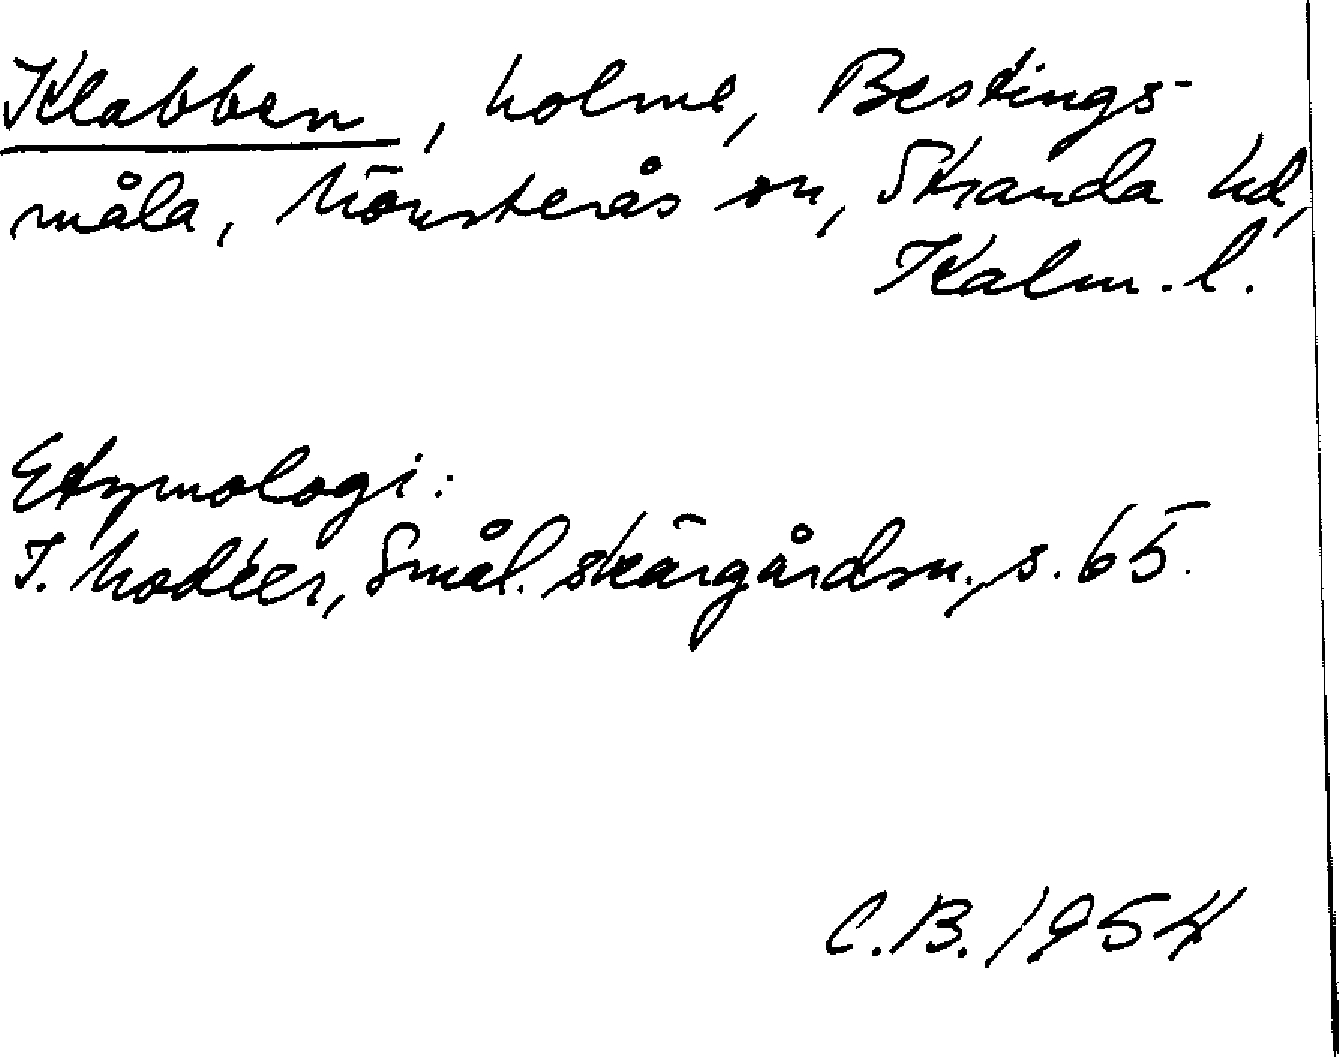 Klabben, holme, Bestings-
måla, Mönsterås sn, Stranda hd,
Kalm. l.
Etymologi:
I. Modéer, Smål. skärgårdsn., s. 65.
C.B. 1954